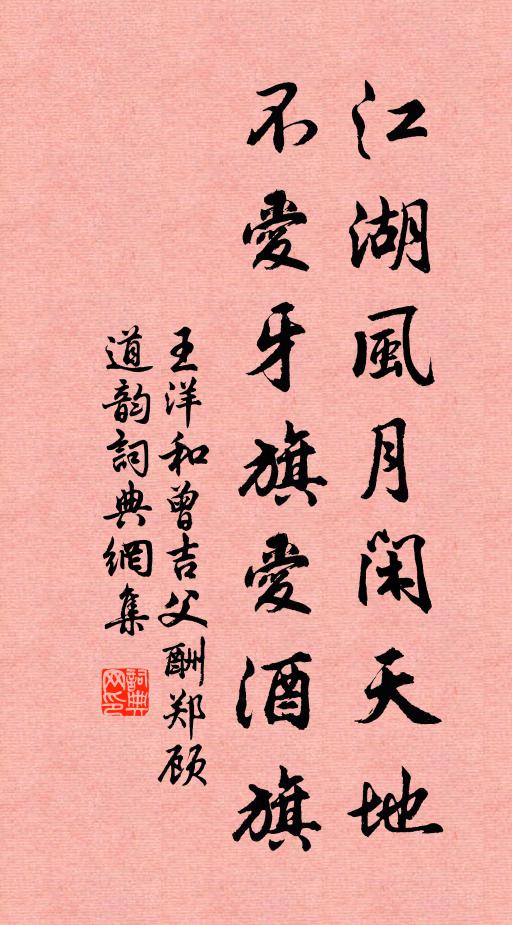 江湖風月閑天地
不愛牙旗愛酒旗
王洋和曾吉父酬郑顾
道韵詞典網集
詞典
网印